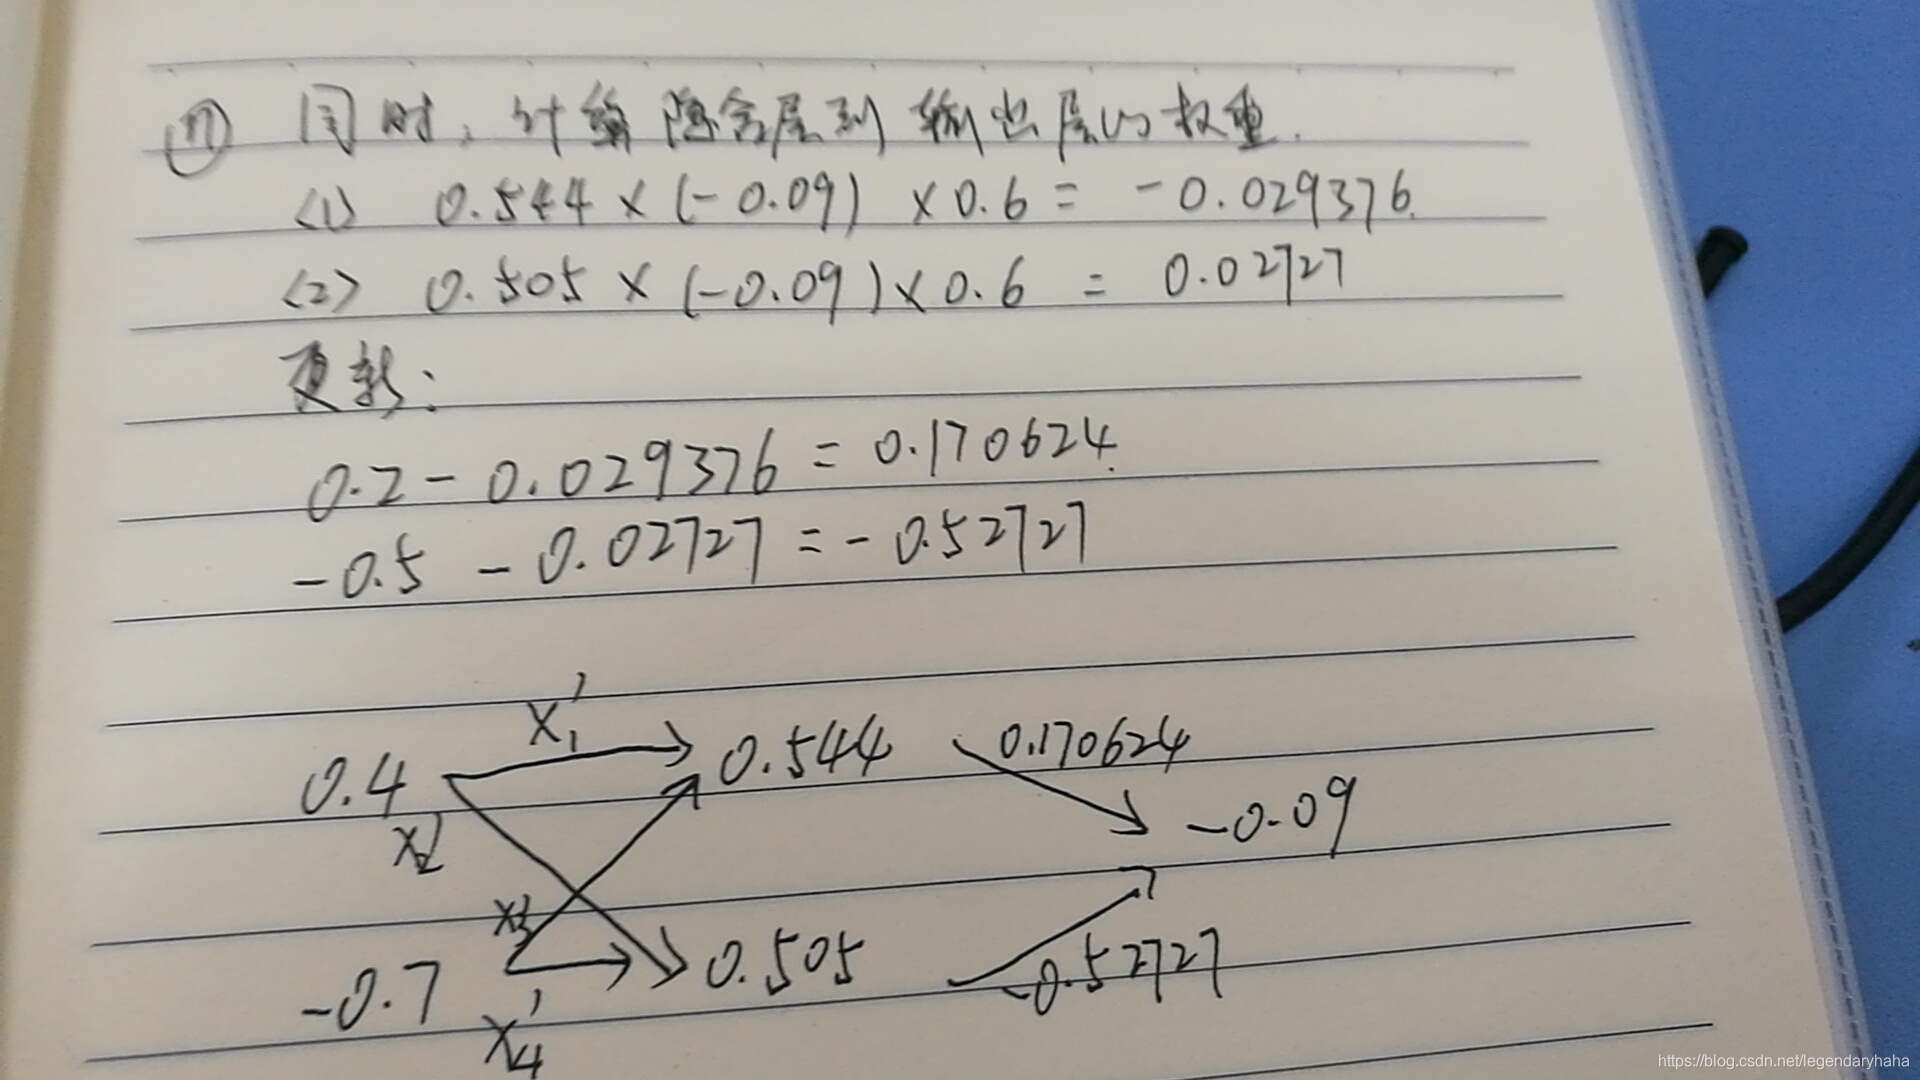 ⑦ 同时,计算隐含层到输出层的权重.
<1> 0.544 × (-0.09) × 0.6 = -0.029376.
<2> 0.505 × (-0.09) × 0.6 = 0.02727
更新:
0.2 - 0.029376 = 0.170624.
-0.5 - 0.02727 = -0.52727
X₁'
0.4 0.544 0.170624
X₂' -0.09
X₃'
-0.7 0.505 -0.52727
X₄'
https://blog.csdn.net/legendaryhaha